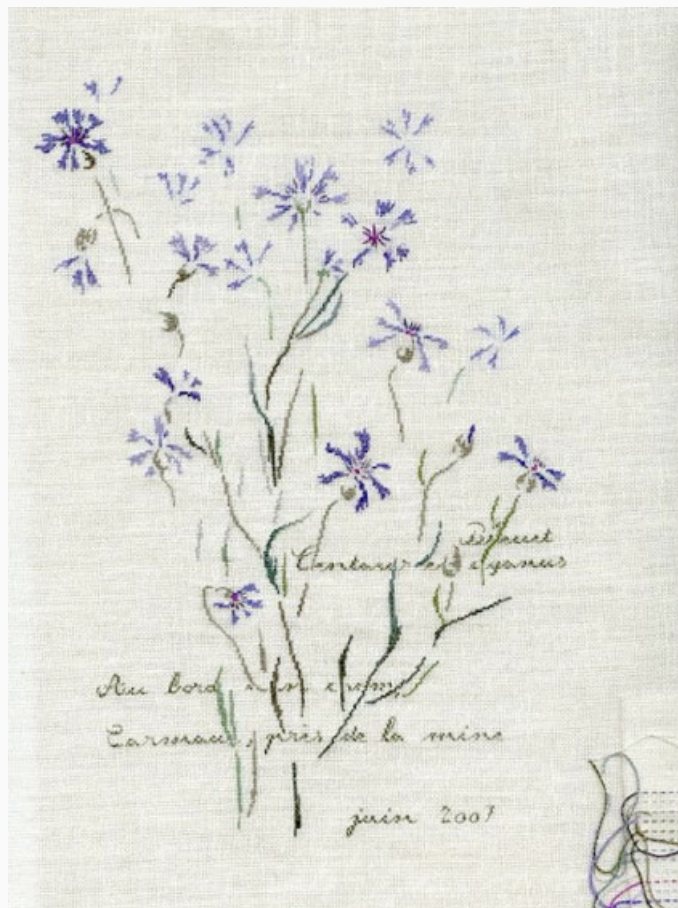 Bleuet
Centaurea cyanus
Au bord d'un champ
Carmaux, près de la mine
juin 2007